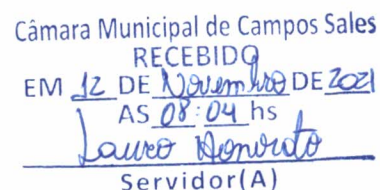 Câmara Municipal de Campos Sales
RECEBIDO
EM 12 DE Novembro DE 2021
AS 08:04 hs
Lauro Honorato
Servidor(A)